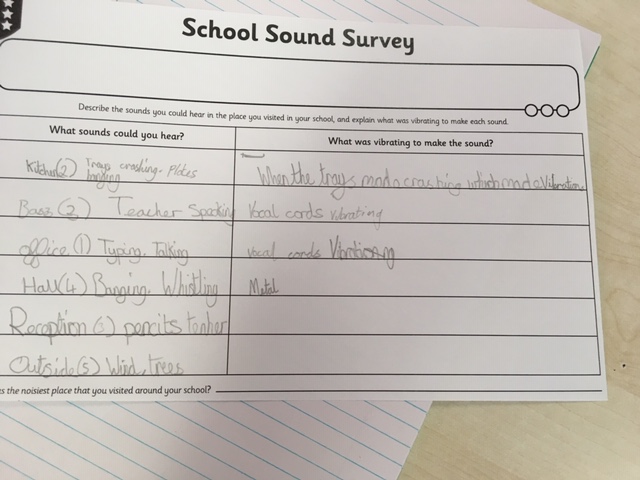 School Sound Survey
Describe the sounds you could hear in the place you visited in your school, and explain what was vibrating to make each sound.
What sounds could you hear? What was vibrating to make the sound?
Kitchen(2) Trays crashing. Plates banging When the trays made crashing which made Vibrations
(2) Teacher Speaking Vocal cords vibrating
office (1) Typing. Talking vocal cords Vibrating
Hall(4) Banging. Whistling Metal
Reception (3) pencils
Outside(5) Wind, trees
the noisiest place that you visited around your school?